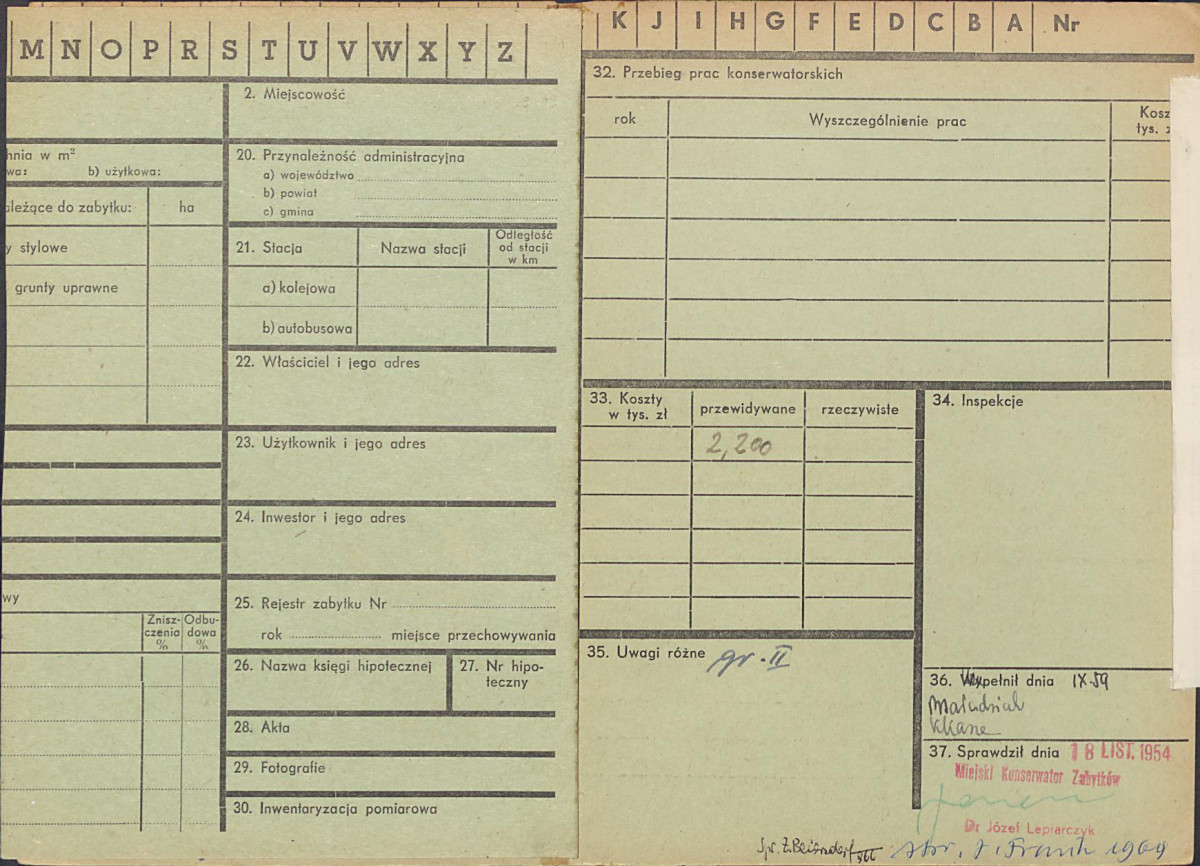 M N O P R S T U V W X Y Z
2. Miejscowość
hnia w m²
wa: b) użytkowa:
ależące do zabytku: ha
y stylowe
grunty uprawne
wy
Znisz-czenia % Odbu-dowa %
20. Przynależność administracyjna
a) województwo
b) powiat
c) gmina
21. Stacja Nazwa stacji Odległość od stacji w km
a) kolejowa
b) autobusowa
22. Właściciel i jego adres
23. Użytkownik i jego adres
24. Inwestor i jego adres
25. Rejestr zabytku Nr
rok miejsce przechowywania
26. Nazwa księgi hipotecznej
27. Nr hipo-
teczny
28. Akta
29. Fotografie
30. Inwentaryzacja pomiarowa
K J I H G F E D C B A Nr
32. Przebieg prac konserwatorskich
rok Wyszczególnienie prac Kosz
tys. z
33. Koszty
w tys. zł przewidywane rzeczywiste
2,200
34. Inspekcje
35. Uwagi różne gr. II
36. Wypełnił dnia IX-59
37. Sprawdził dnia 18 LIST. 1954
Miejski Konserwator Zabytków
Dr Józef Lepiarczyk
Spr. Z. Beiersdorf
1969